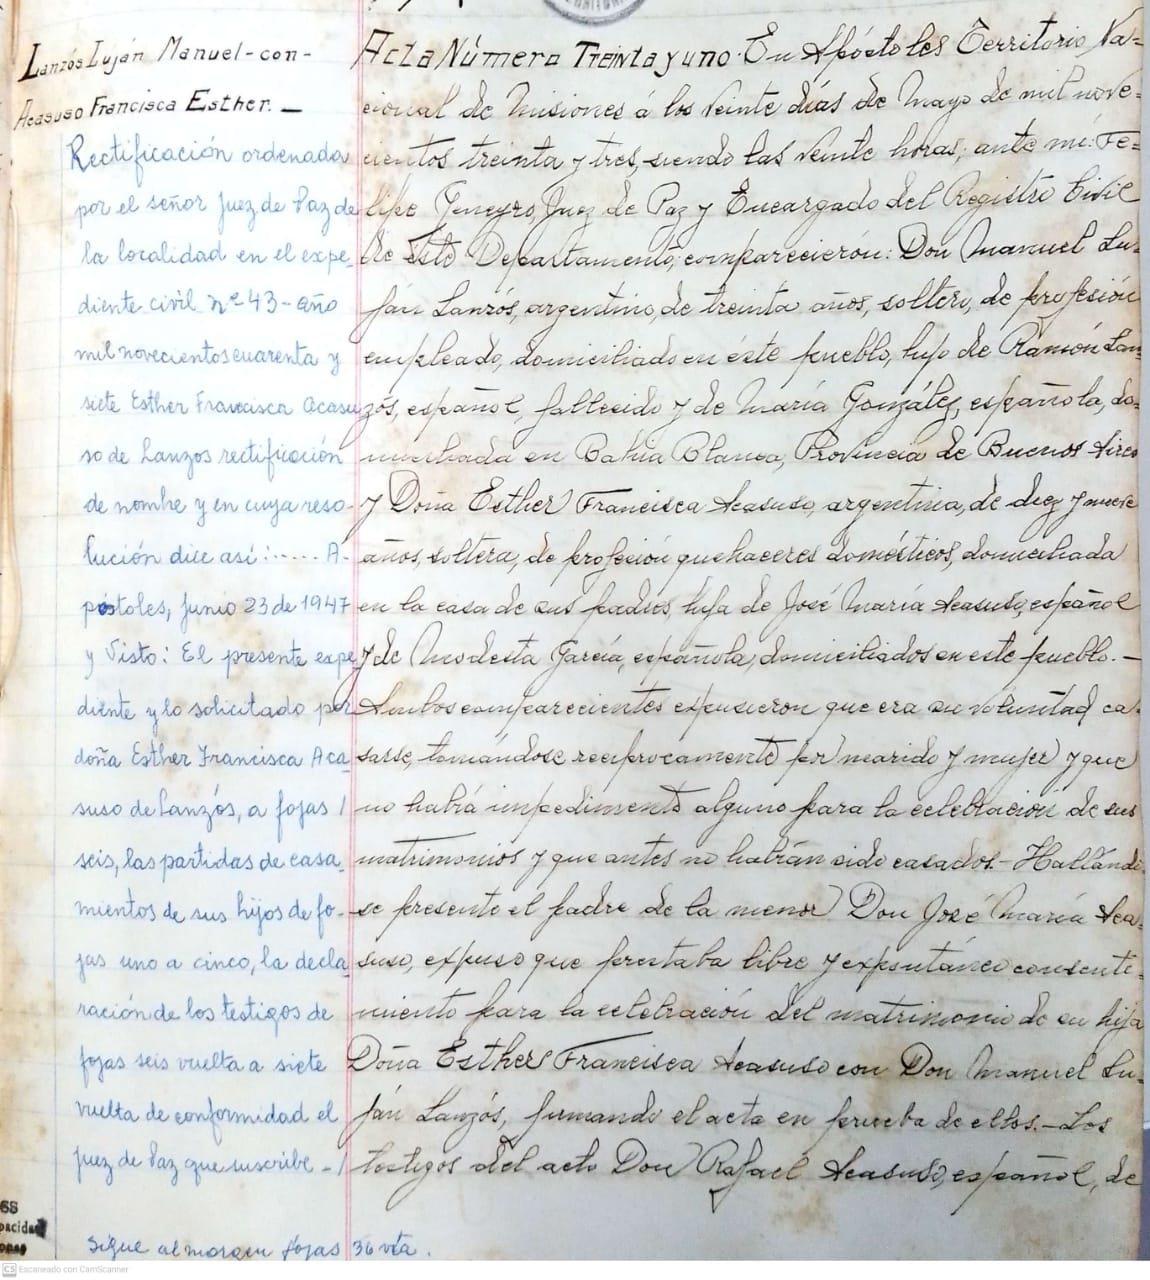 Lanzós Luján Manuel-con-
Acasuso Francisca Esther. —
Rectificación ordenada
por el señor Juez de Paz de
la localidad en el expe-
diente civil nº 43-año
mil novecientos cuarenta y
siete Esther Francisca Acasu
so de Lanzos rectificación
de nombre y en cuya reso-
lución dice así:...... A-
póstoles, Junio 23 de 1947
y Visto: El presente expe
diente y lo solicitado por
doña Esther Francisca Aca
suso de Lanzós, a fojas /
seis, las partidas de casa
mientos de sus hijos de fo-
jas uno a cinco, la decla
ración de los testigos de
fojas seis vuelta a siete
vuelta de conformidad el
juez de Paz que suscribe -/
Sigue al margen fojas 36 vta.
Acta Número Treinta y uno. En Apóstoles Territorio Na-
cional de Misiones á los veinte días de Mayo de mil nove-
cientos treinta y tres, siendo las veinte horas; ante mí: Fe-
lipe Juez de Paz y Encargado del Registro Civil
de este Departamento; comparecierón: Don Manuel Lu-
ján Lanzós, argentino, de treinta años, soltero, de profesión
empleado, domiciliado en éste pueblo, hijo de Ramón Lan-
zós, español, fallecido y de María González, española, do-
miciliada en Bahia Blanca, Provincia de Buenos Aires
y Doña Esther Francisca Acasuso, argentina, de diez y nueve
años, soltera, de profeción quehaceres domésticos, domiciliada
en la casa de sus padres, hija de José María Acasuso, español
y de Modesta García, española, domiciliados en este pueblo. —
Ambos comparecientes expusieron que era su voluntad ca-
sarse, tomándose reciprocamente por marido y mujer y que
no habrá impedimento alguno para la celebración de sus
matrimonios y que antes no habrán sido casados.- Hallándo
se presente el padre de la menor Don José María Aca-
suso, expuso que prestaba libre y expontáneo consenti-
miento para la celebración del matrimonio de su hija
Doña Esther Francisca Acasuso con Don Manuel Lu-
ján Lanzós, firmando el acta en prueba de ellos.- Los
testigos del acto Don Rafael Acasuso, español, de
Escaneado con CamScanner